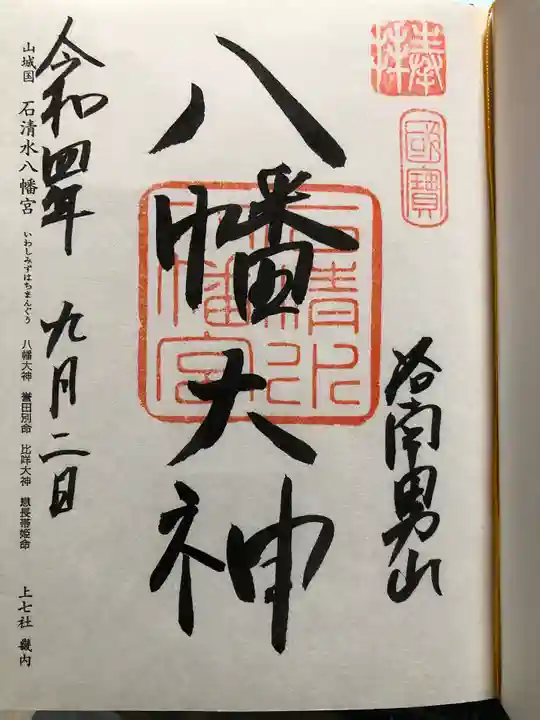 奉拝
國寳
洛南男山
八幡大神
石清水八幡宮
令和四年 九月二日
山城国 石清水八幡宮 いわしみずはちまんぐう 八幡大神 誉田別命 比咩大神 息長帯姫命 上七社 畿内